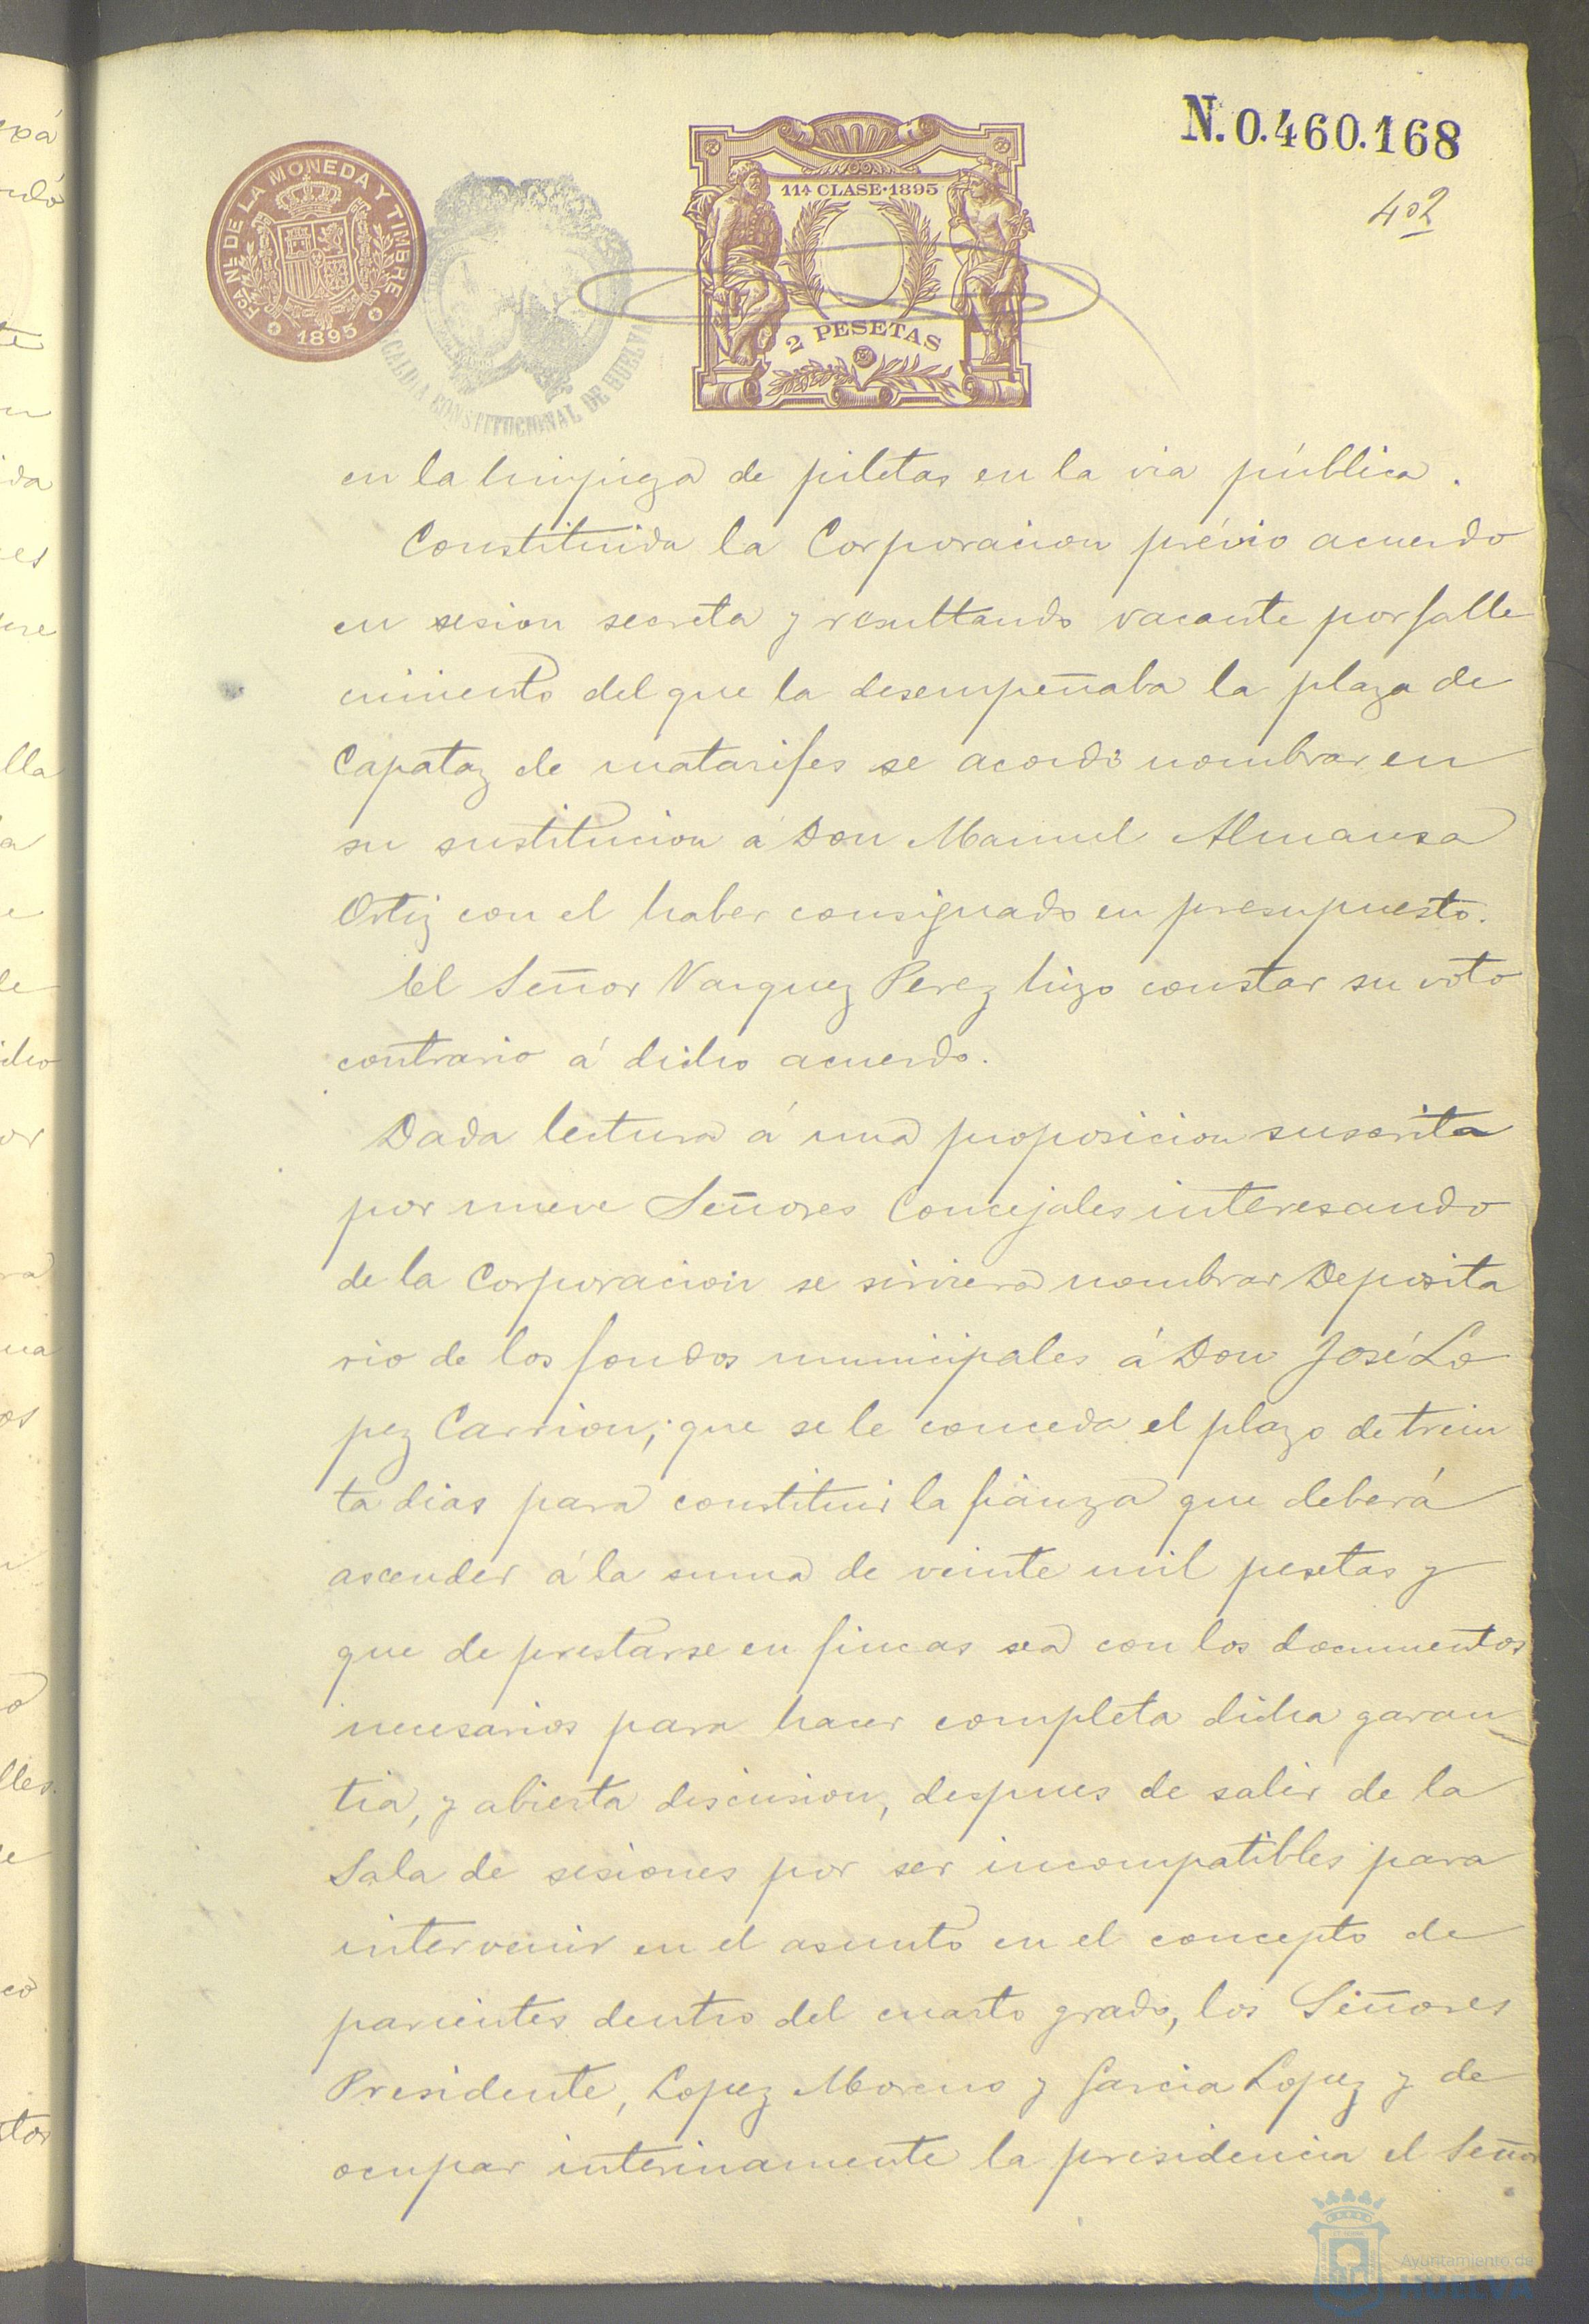 N. 0.460.168
402
FCA NL DE LA MONEDA Y TIMBRE
1895
ALCALDIA CONSTITUCIONAL DE HUELVA
11ª CLASE·1895
2 PESETAS
en la limpieza de piletas en la via pública.
Constituida la Corporacion prévio acuerdo
en sesion secreta y resultando vacante por falle
cimiento del que la desempeñaba la plaza de
Capataz de matarifes se acordó nombrar en
su sustitucion á Don Manuel Almansa
Ortiz con el haber consignado en presupuesto.
El Señor Vazquez Perez hizo constar su voto
contrario á dicho acuerdo.
Dada lectura á una proposicion suscrita
por nueve Señores Concejales interesando
de la Corporacion se sirviera nombrar Deposita
rio de los fondos municipales á Don José Lo
pez Carrion; que se le conceda el plazo de trein
ta dias para constituir la fianza que deberá
ascender á la suma de veinte mil pesetas y
que de prestarse en fincas sea con los documentos
necesarios para hacer completa dicha garan
tia, y abierta discusion, despues de salir de la
Sala de sesiones por ser incompatibles para
intervenir en el asunto en el concepto de
parientes dentro del cuarto grado, los Señores
Presidente, Lopez Moreno y Garcia Lopez y de
ocupar interinamente la presidencia el Señor
Ayuntamiento de
HUELVA